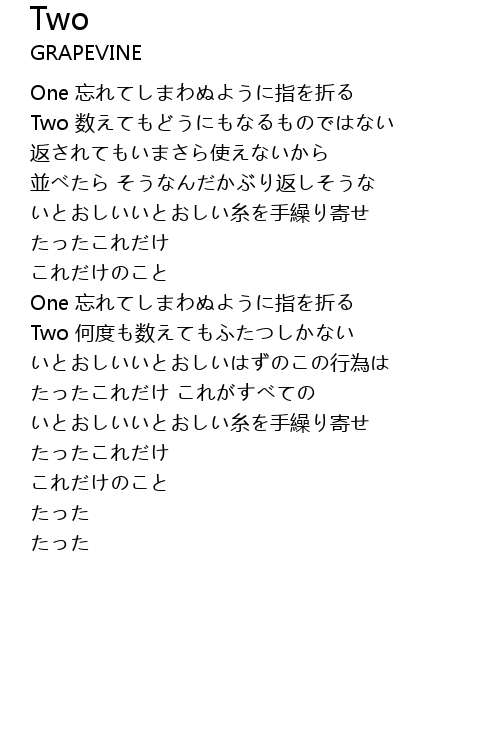 Two
GRAPEVINE
One 忘れてしまわぬように指を折る
Two 数えてもどうにもなるものではない
返されてもいまさら使えないから
並べたら そうなんだかぶり返しそうな
いとおしいいとおしい糸を手繰り寄せ
たったこれだけ
これだけのこと
One 忘れてしまわぬように指を折る
Two 何度も数えてもふたつしかない
いとおしいいとおしいはずのこの行為は
たったこれだけ これがすべての
いとおしいいとおしい糸を手繰り寄せ
たったこれだけ
これだけのこと
たった
たった